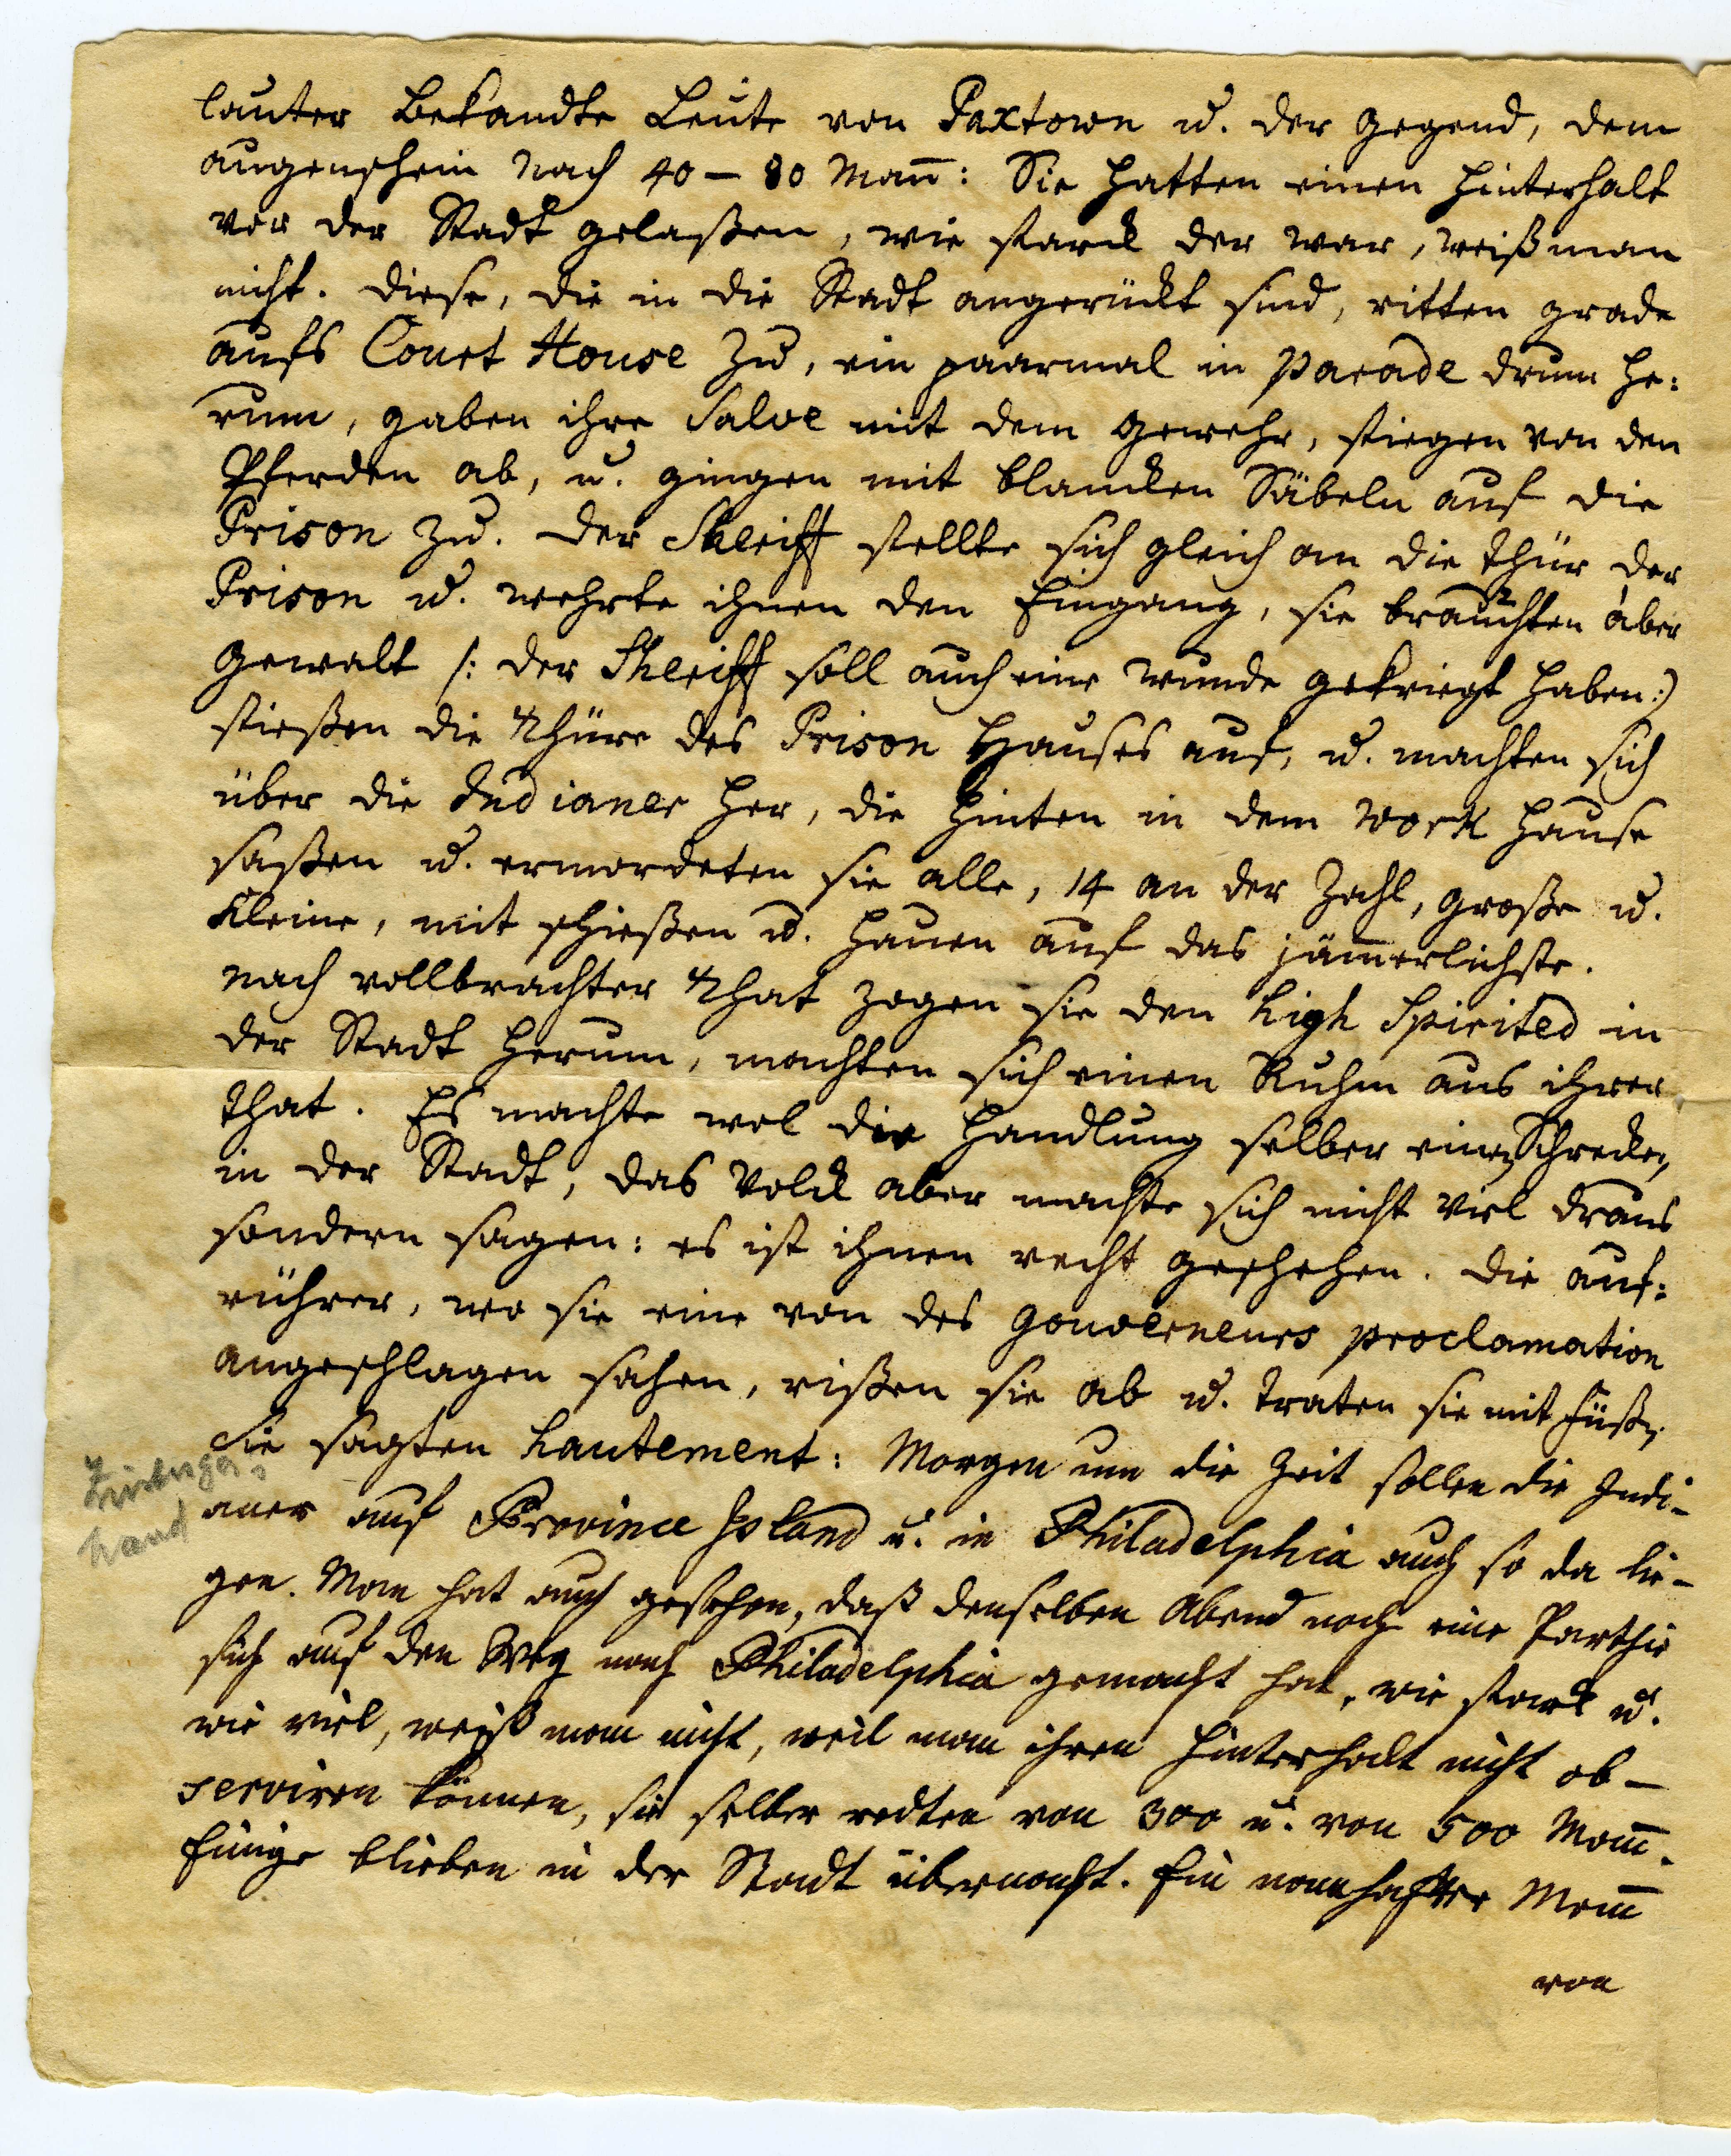 lauter Bekandte Leute von Paxtown u. der Gegend, dem
augenschein nach 40 – 80 Man̄: Sie hatten einen hinterhalt
vor der Stadt gelaßen, wie starck der war, weiß man
nicht. Diese, die in die Stadt angerückt sind, ritten grade
aufs Court House zu, ein paarmal in Parade drum he:
rum, gaben ihre Salve mit dem Gewehr, stiegen von den
Pferden ab, u. gingen mit blancken Säbeln auf die
Prison zu. Der Sheriff stellte sich gleich an die thür der
Prison u. wehrte ihnen den Eingang, sie brauchten aber
Gewalt /: der Sheriff soll auch eine Wunde gekriegt haben:)
stießen die Thüre des Prison Hauses auf, u. machten sich
über die Indianer her, die hinten in dem Work hause
saßen u. ermordeten sie alle, 14 an der Zahl, große u.
Kleine, mit schießen u. hauen auf das jäm̄erlichste.
Nach vollbrachter That zogen sie den high Spirited in
der Stadt herum, machten sich einen Ruhm aus ihrer
that. Es machte wol die Handlung selber einen Schrecken
in der Stadt, das Volck aber machte sich nicht viel draus
sondern sagen: es ist ihnen recht geschehen. Die auf:
rührer, wo sie eine von des Gouverneurs proclamation
angeschlagen sahen, rißen sie ab u. traten sie mit füßen,
Sie sagten hautement: Morgen um die Zeit sollen die Indi-
aner auf Province Island u. in Philadelphia auch so da lie-
gen. Man hat auch gesehen, daß denselben Abend noch eine Parthie
sich auf den Weg nach Philadelphia gemacht hat, wie starck u.
wie viel, weiß man nicht, weil man ihren hinterhalt nicht ob-
serviren können, sie selber redten von 300 u. von 500 Man̄.
Einige blieben in der Stadt übernacht. Ein namhafter Man̄
von
hand